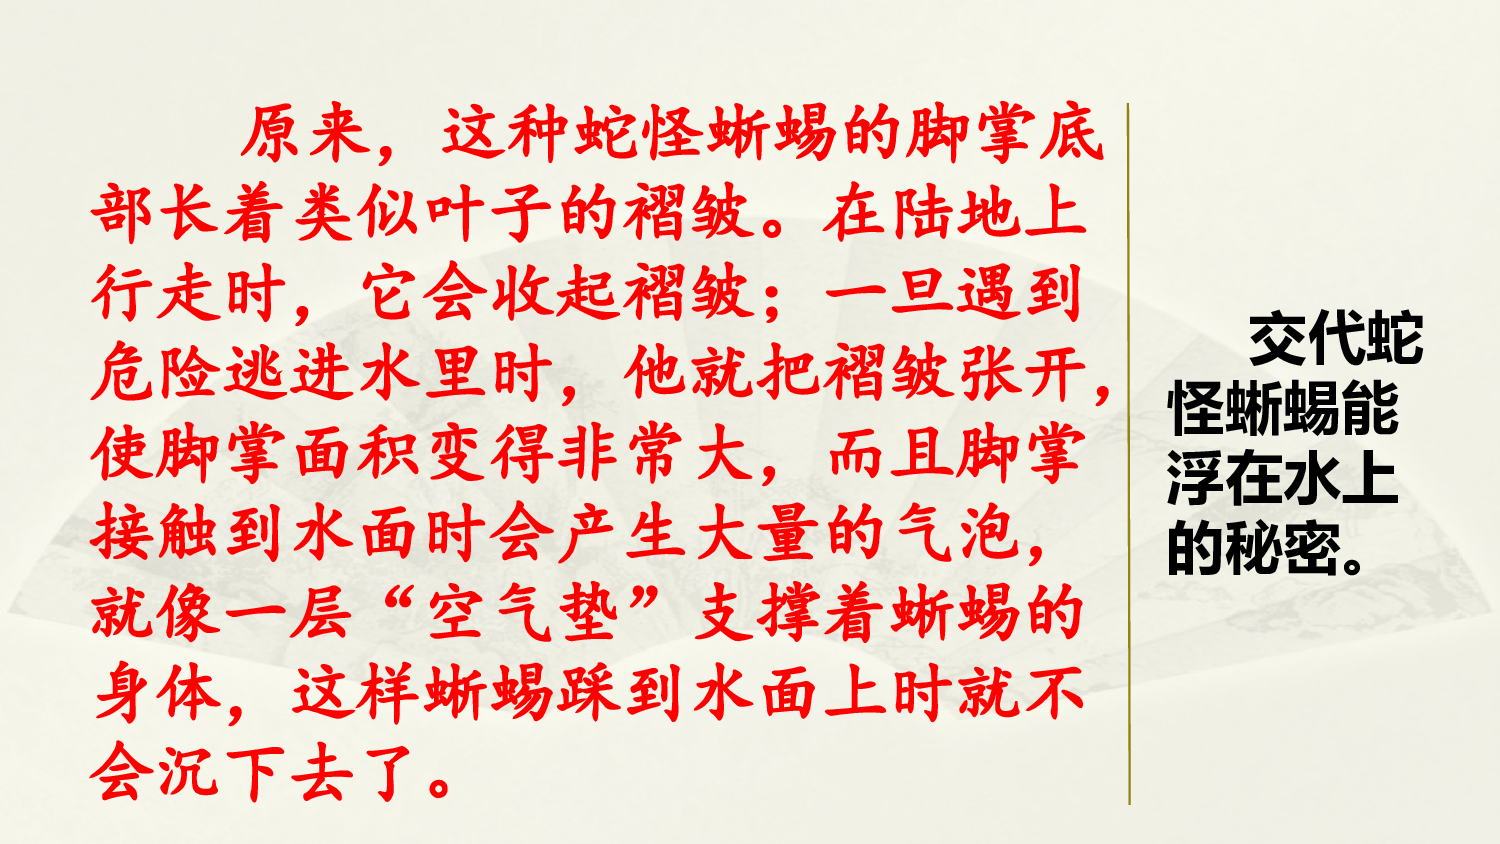 原来，这种蛇怪蜥蜴的脚掌底
部长着类似叶子的褶皱。在陆地上
行走时，它会收起褶皱；一旦遇到
危险逃进水里时，他就把褶皱张开，
使脚掌面积变得非常大，而且脚掌
接触到水面时会产生大量的气泡，
就像一层“空气垫”支撑着蜥蜴的
身体，这样蜥蜴踩到水面上时就不
会沉下去了。
交代蛇
怪蜥蜴能
浮在水上
的秘密。